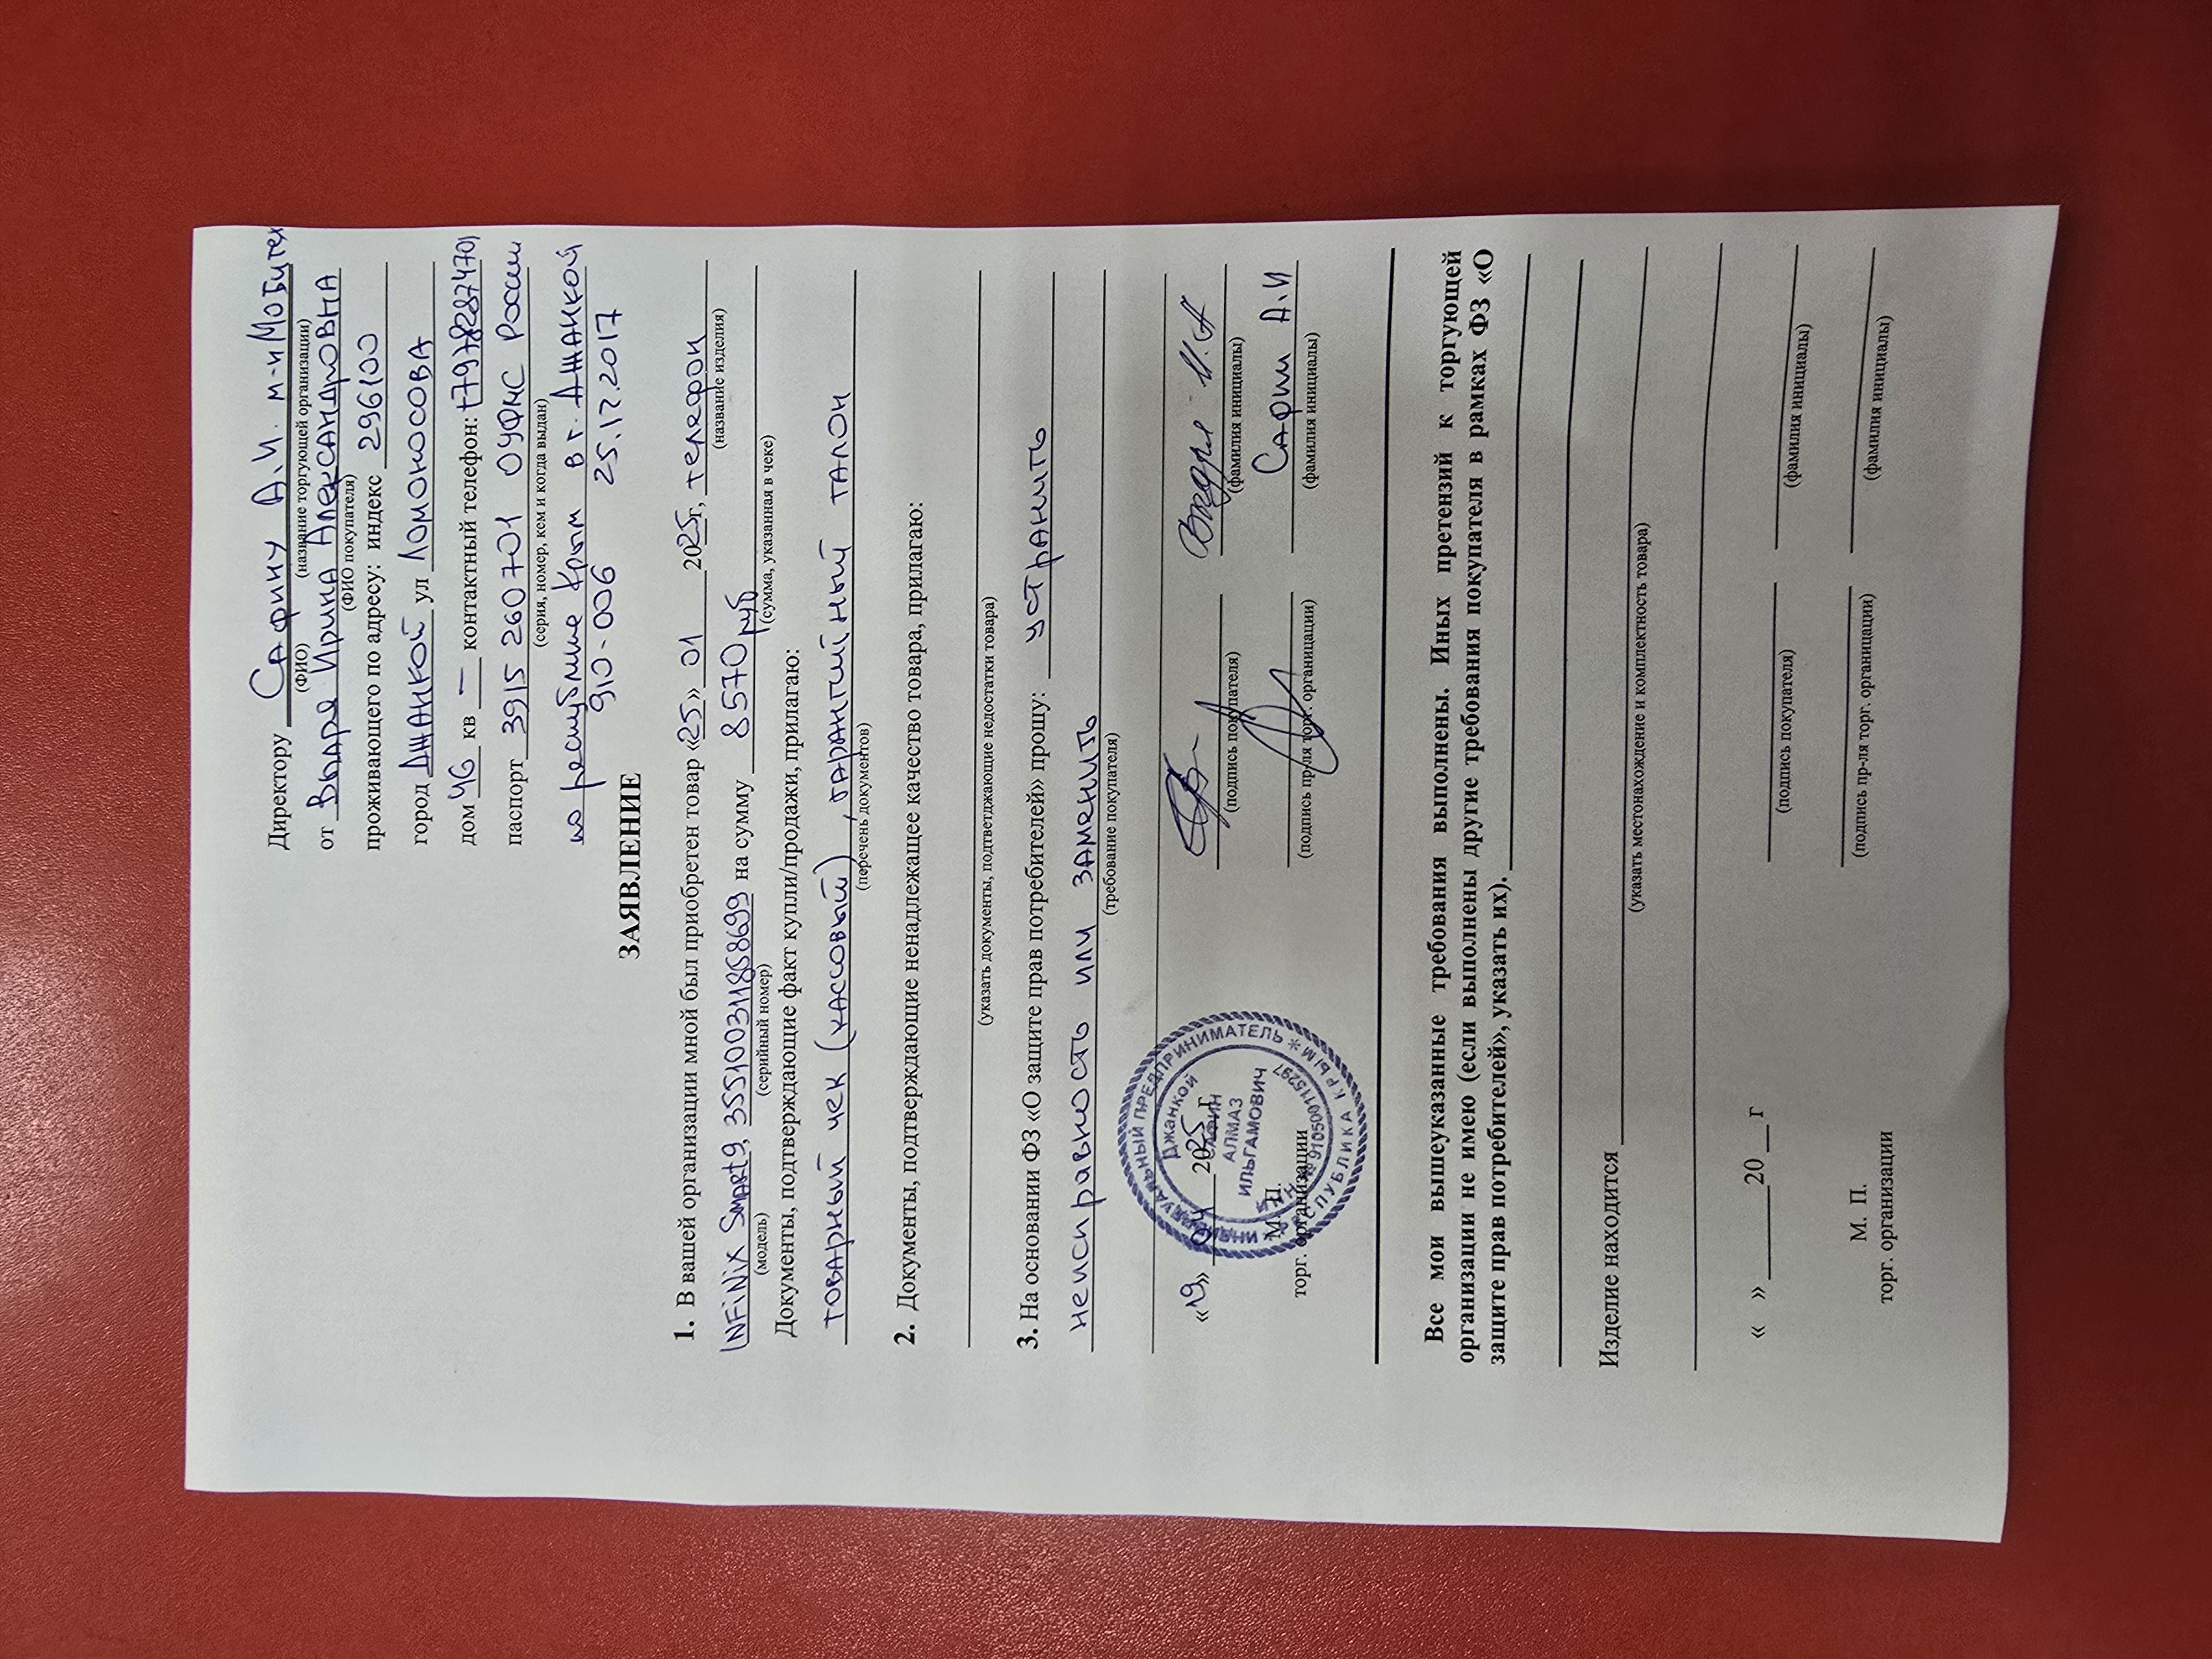 Директору Сафину А.И. м-н Мобитех
(ФИО) (название торгующей организации)
от Выдря Ирина Александровна
(ФИО покупателя)
проживающего по адресу: индекс 296100
город Джанкой ул Ломоносова
дом 4б кв — контактный телефон:
паспорт 3915 260701 ОУФМС России
(серия, номер, кем и когда выдан)
по республике Крым в г. Джанкой
910-006 25.12.2017
ЗАЯВЛЕНИЕ
1. В вашей организации мной был приобретен товар «25» 01 2025г, телефон
(название изделия)
INFiNiX Smart9, 355100311858699 на сумму 8570 руб
(модель) (серийный номер) (сумма, указанная в чеке)
Документы, подтверждающие факт купли/продажи, прилагаю:
товарный чек (кассовый), гарантийный талон
(перечень документов)
2. Документы, подтверждающие ненадлежащее качество товара, прилагаю:
(указать документы, подтверждающие недостатки товара)
3. На основании ФЗ «О защите прав потребителей» прошу: устранить
неисправность или заменить
(требование покупателя)
«19» 04 2025 г Выдря И.А
(подпись покупателя) (фамилия инициалы)
Сафин А.И
М. П.
торг. организации (подпись пр-ля торг. организации) (фамилия инициалы)
ИНДИВИДУАЛЬНЫЙ ПРЕДПРИНИМАТЕЛЬ * РЕСПУБЛИКА КРЫМ *
Джанкой
САФИН
АЛМАЗ
ИЛЬГАМОВИЧ
Все мои вышеуказанные требования выполнены. Иных претензий к торгующей
организации не имею (если выполнены другие требования покупателя в рамках ФЗ «О
защите прав потребителей», указать их).
Изделие находится
(указать местонахождение и комплектность товара)
« » 20 г
(подпись покупателя) (фамилия инициалы)
М. П.
торг. организации (подпись пр-ля торг. организации) (фамилия инициалы)